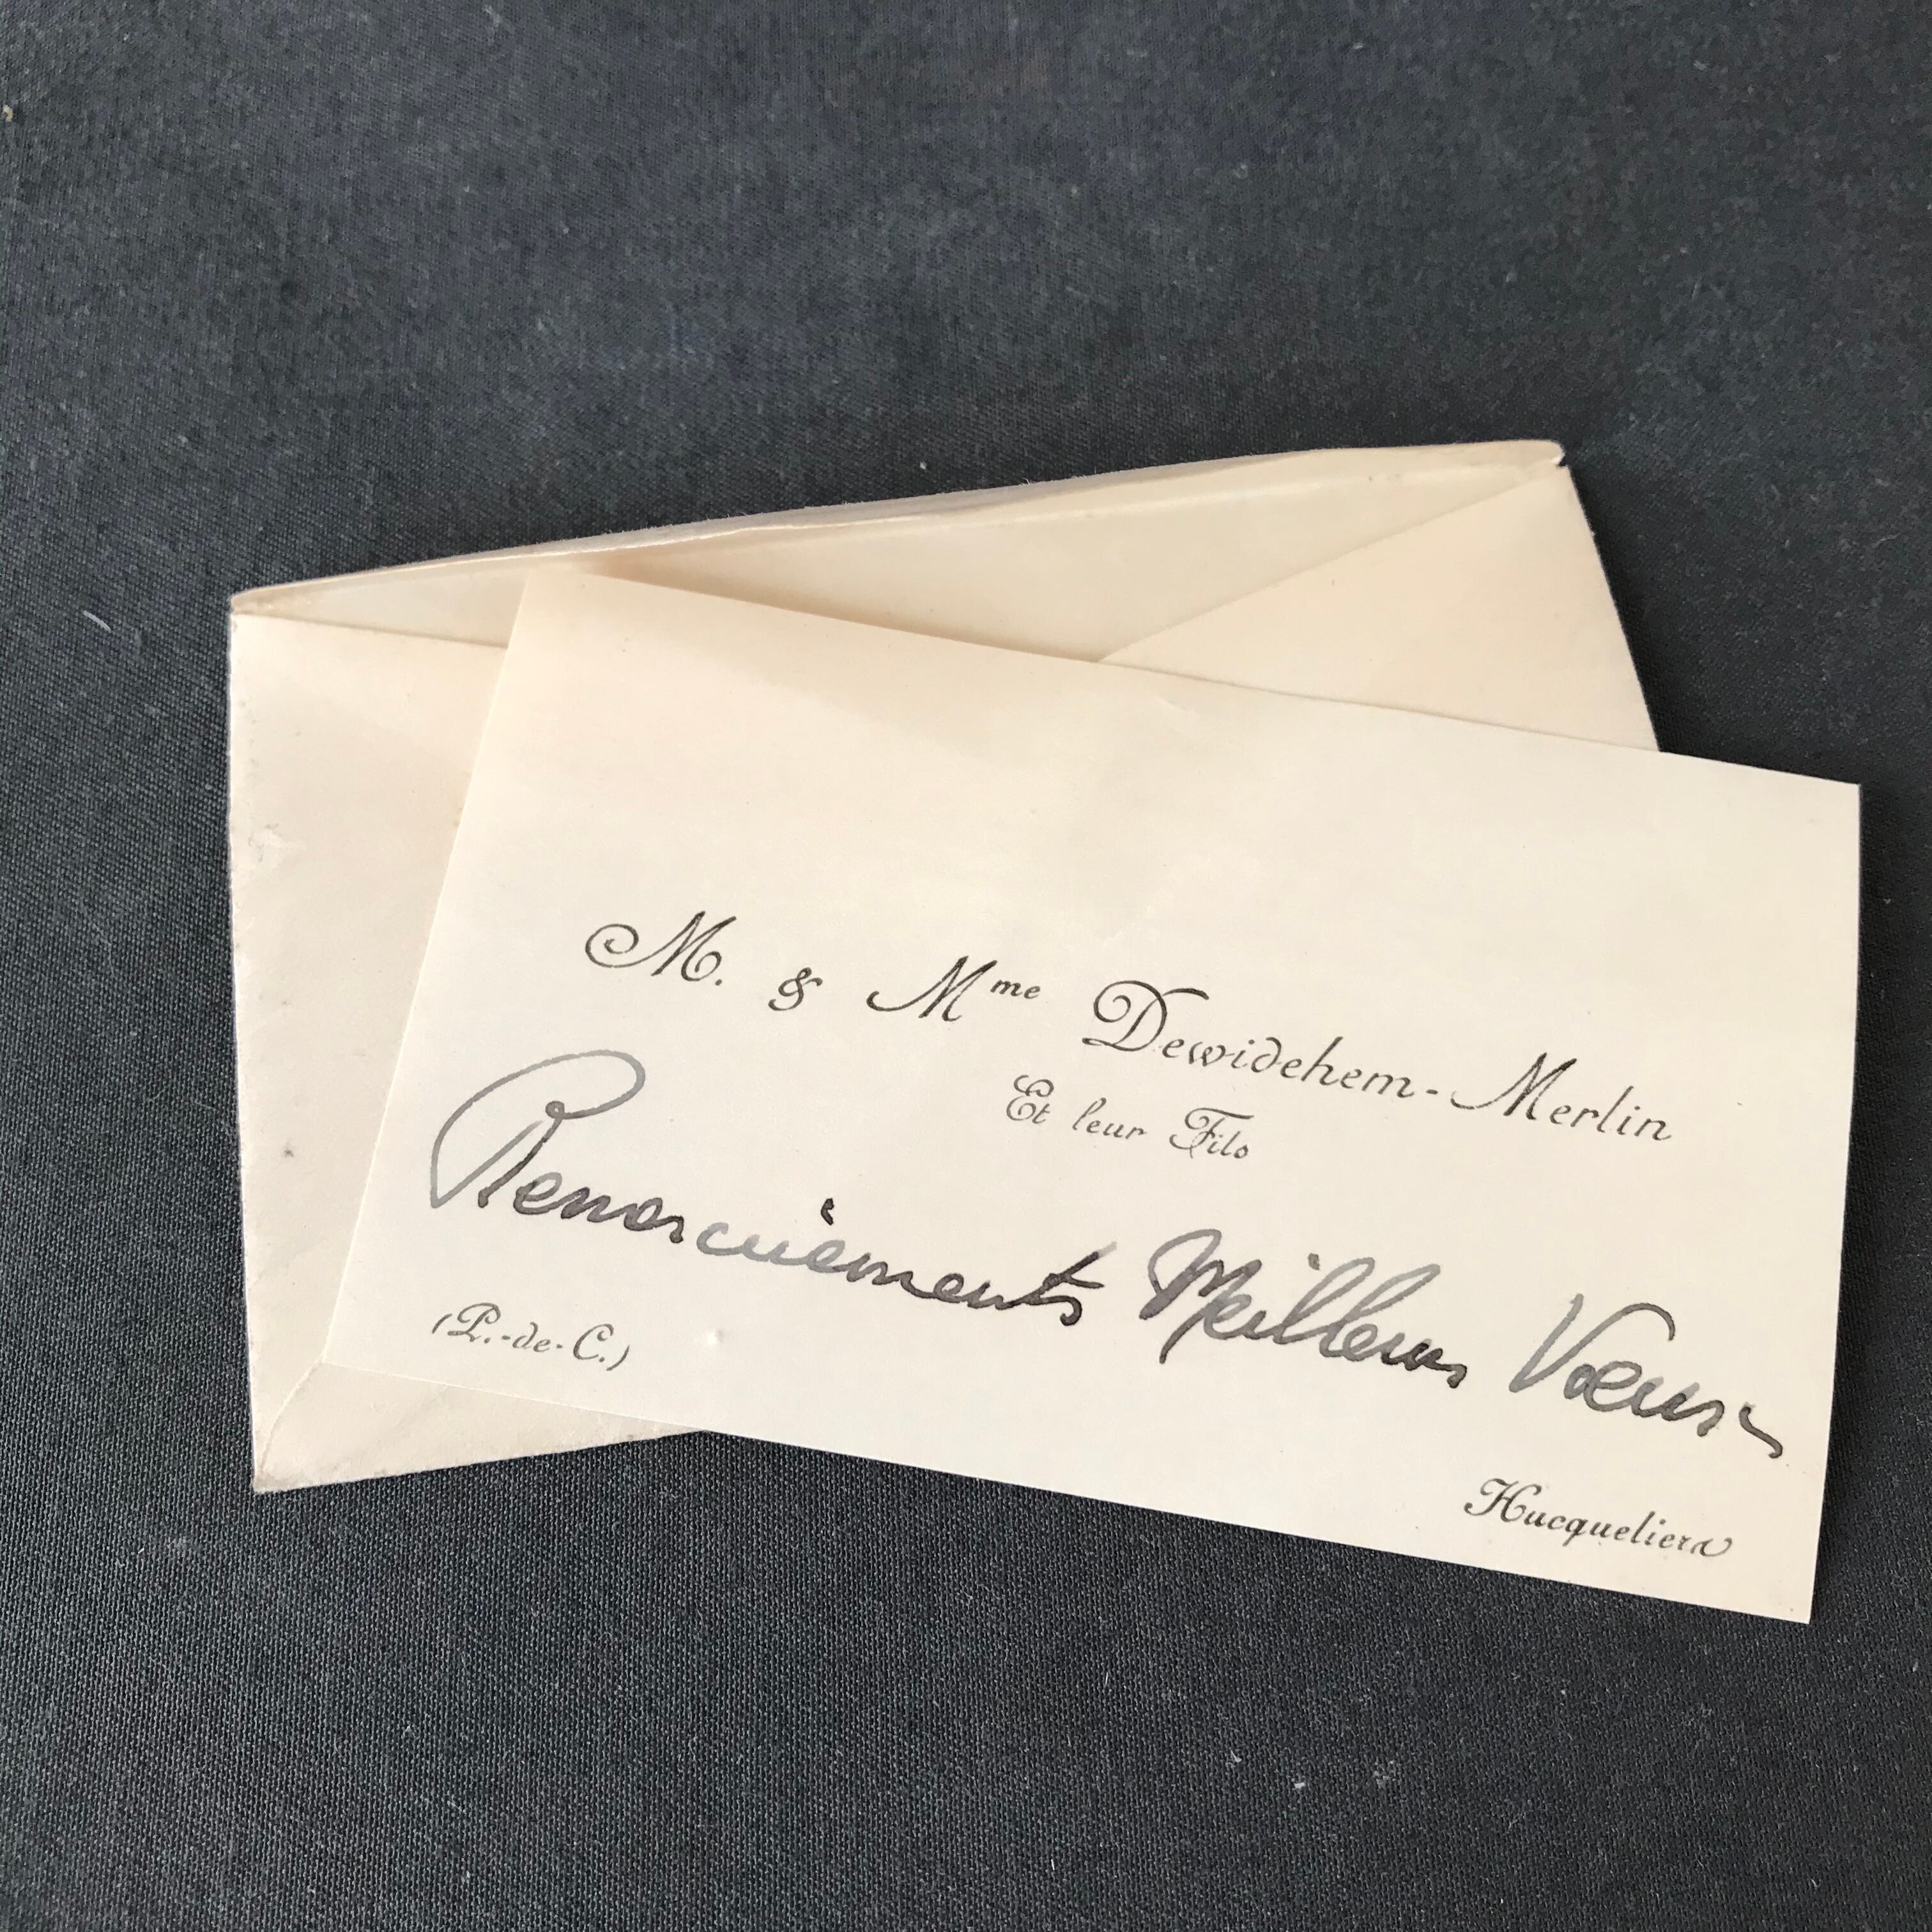 M. & Mme Dewidehem-Merlin
Et leur Fils
Remerciements Meilleurs Vœux
(P.-de-C.)
Hucqueliers